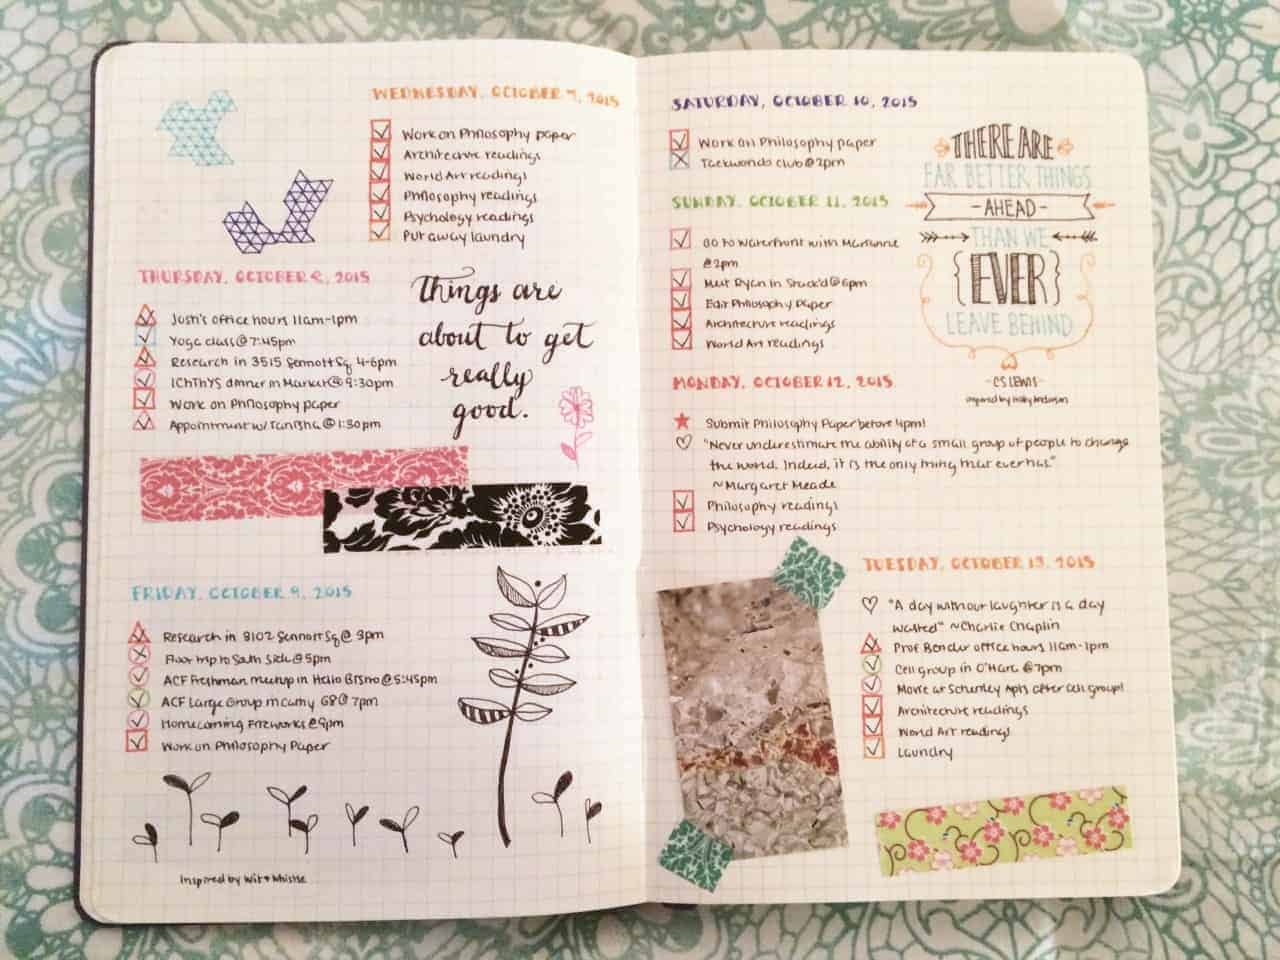 WEDNESDAY, OCTOBER 7, 2015
Work on Philosophy paper
Architecture readings
World Art readings
Philosophy readings
Psychology readings
Put away laundry
THURSDAY, OCTOBER 8, 2015
Josh's office hours 11am-1pm
Yoga class @ 7:45pm
Research in 3515 Sennott Sq 4-6pm
ICHTHYS dinner in Market @ 9:30pm
Work on Philosophy paper
Appointment w/ Tanisha @ 1:30pm
Things are
about to get
really
good.
FRIDAY, OCTOBER 9, 2015
Research in 8102 Sennott Sq @ 3pm
Floor trip to South Side @ 5pm
ACF Freshman meetup in Halo @ 5:45pm
ACF Large Group in Cathy G8 @ 7pm
Homecoming Fireworks @ 9pm
Work on Philosophy Paper
Inspired by Wit + Whistle
SATURDAY, OCTOBER 10, 2015
Work on Philosophy paper
Taekwondo Club @ 2pm
SUNDAY, OCTOBER 11, 2015
Go to Waterfront with Marianne
@ 2pm
Meet Ryan in Stack'd @ 6pm
Edit Philosophy Paper
Architecture readings
World Art readings
THERE ARE
FAR BETTER THINGS
-AHEAD-
THAN WE
{EVER}
LEAVE BEHIND
-CS LEWIS-
inspired by
MONDAY, OCTOBER 12, 2015
Submit Philosophy Paper before 4pm!
"Never underestimate the ability of a small group of people to change
the world. Indeed, it is the only thing that ever has."
~Margaret Meade
Philosophy readings
Psychology readings
TUESDAY, OCTOBER 13, 2015
"A day without laughter is a day
wasted" ~Charlie Chaplin
Prof Bender office hours 11am-1pm
Cell group in O'Hara @ 7pm
Movie at Schenley Apts after cell group!
Architecture readings
World Art readings
Laundry